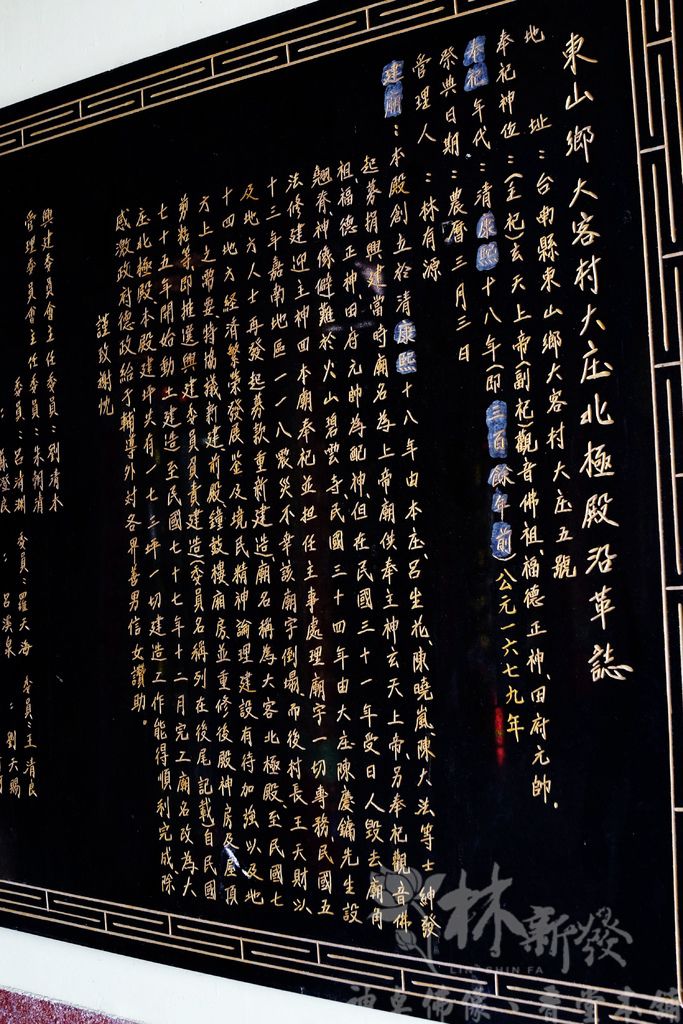 東山鄉大客村大庄北極殿沿革誌
地址：台南縣東山鄉大客村大庄五號
奉祀神位：(主祀)玄天上帝(副祀)觀音佛祖、福德正神、田府元帥.
奉祀年代：清康熙十八年(即三百餘年前)公元一六七九年
祭典日期：農曆三月三日
管理人：林有源
建廟：本殿創立於清康熙十八年由本庄、呂生花、陳曉嵐、陳大法等士紳發
起募捐興建當時廟名為上帝廟供奉主神玄天上帝、另奉祀觀音佛
祖、福德正神、田府元帥為配神、但在民國三十一年受日人毀去廟角
翹脊、神像避難於火山碧雲寺、民國三十四年由大庄陳慶鏞先生設
法修建迎主神回本廟奉祀並担任主事處理廟宇一切專務、民國五
十三年嘉南地區一一八震災不幸該廟宇倒塌、而後村長王天財以
及地方人士再發起募款重新建造、廟名稱為大客北極殿、至民國七
十四地方經濟繁榮發展釜及境民精神論理建設有待加強以及地
方上之需要特協議新建前殿鐘鼓樓廂房並重修後殿神房及屋頂
剪粘等即推選興建委員負責建造(委員名稱列在後尾記載)自民國
七十五年開始動土建造至民國七十七年十二月完工廟名改為大
庄北極殿本殿建坪共有一七三坪一切建造工作能得順利完成除
感激政府德政給予輔導外對各界善男信女讚助。
謹致謝忱
興建委員會主任委員：劉清本
管理委員會主任委員：朱朝清 委員：羅天海 委員：王清良
委員：呂清湖 ：呂溪泉 ：劉天賜
林新發
LIN SHIN FA
神桌佛像、育堂本舖